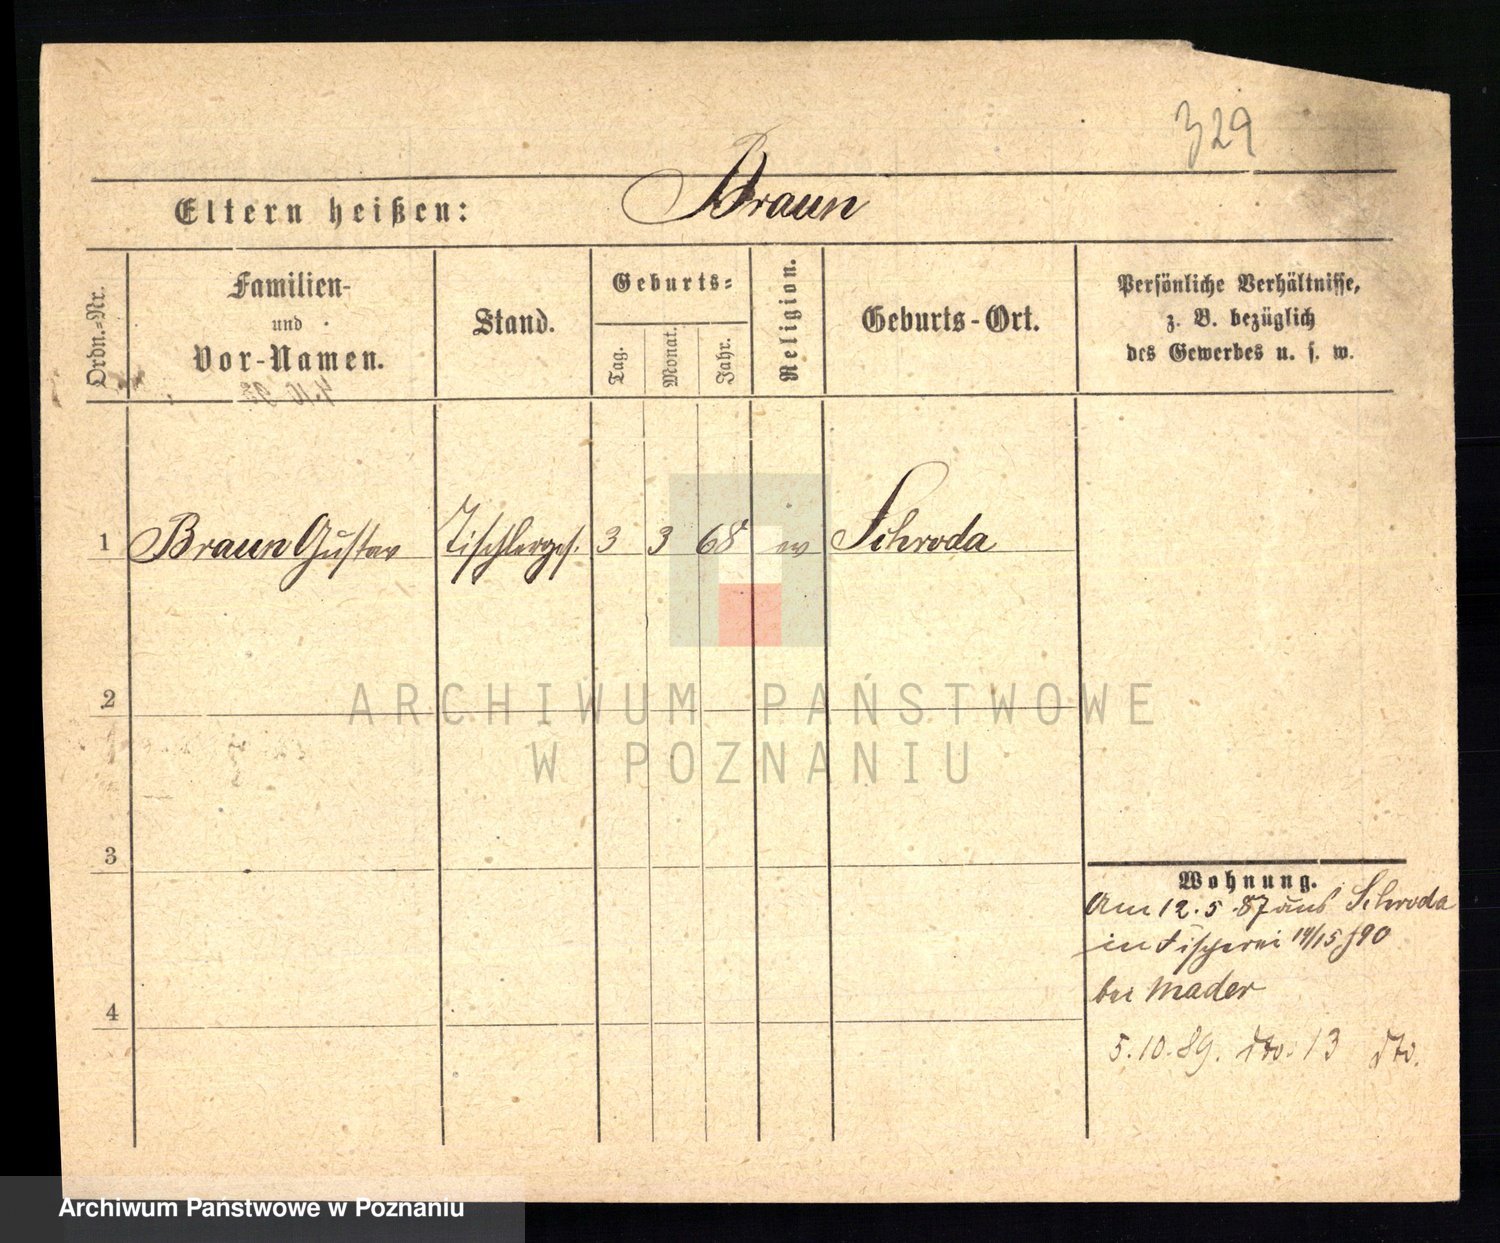 329
Eltern heißen: Braun
Ordn.=Nr.
Familien-
und
Vor-Namen.
Stand.
Geburts=
Tag.
Monat.
Jahr.
Religion.
Geburts-Ort.
Persönliche Verhältnisse,
z. B. bezüglich
des Gewerbes u. s. w.
1 Braun Gustav Tischlerges. 3 3 68 ev Schroda
2
3
4
Wohnung.
Am 12.5.87 aus Schroda
in Fischerei 14/15
bei Mader
5.10.89. dto. 13 dto.
ARCHIWUM PAŃSTWOWE
W POZNANIU
Archiwum Państwowe w Poznaniu